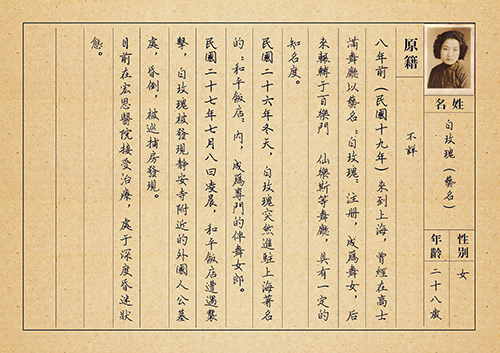 姓名
白玫瑰（藝名）
性别
女
年齡
二十八歲
原籍
不詳
八年前（民國十九年）來到上海，曾經在高士
滿舞廳以藝名“白玫瑰”注册，成爲舞女，后
來輾轉于百樂門 仙樂斯等舞廳，具有一定的
知名度。
民國二十六年冬天，白玫瑰突然進駐上海著名
的“和平飯店”内，成爲專門的伴舞女郎。
民國二十七年七月八日凌晨，和平飯店遭遇襲
擊，白玫瑰被發現静安寺附近的外國人公墓
處，昏倒，被巡捕房發現。
目前在宏恩醫院接受治療，處于深度昏迷狀
態。